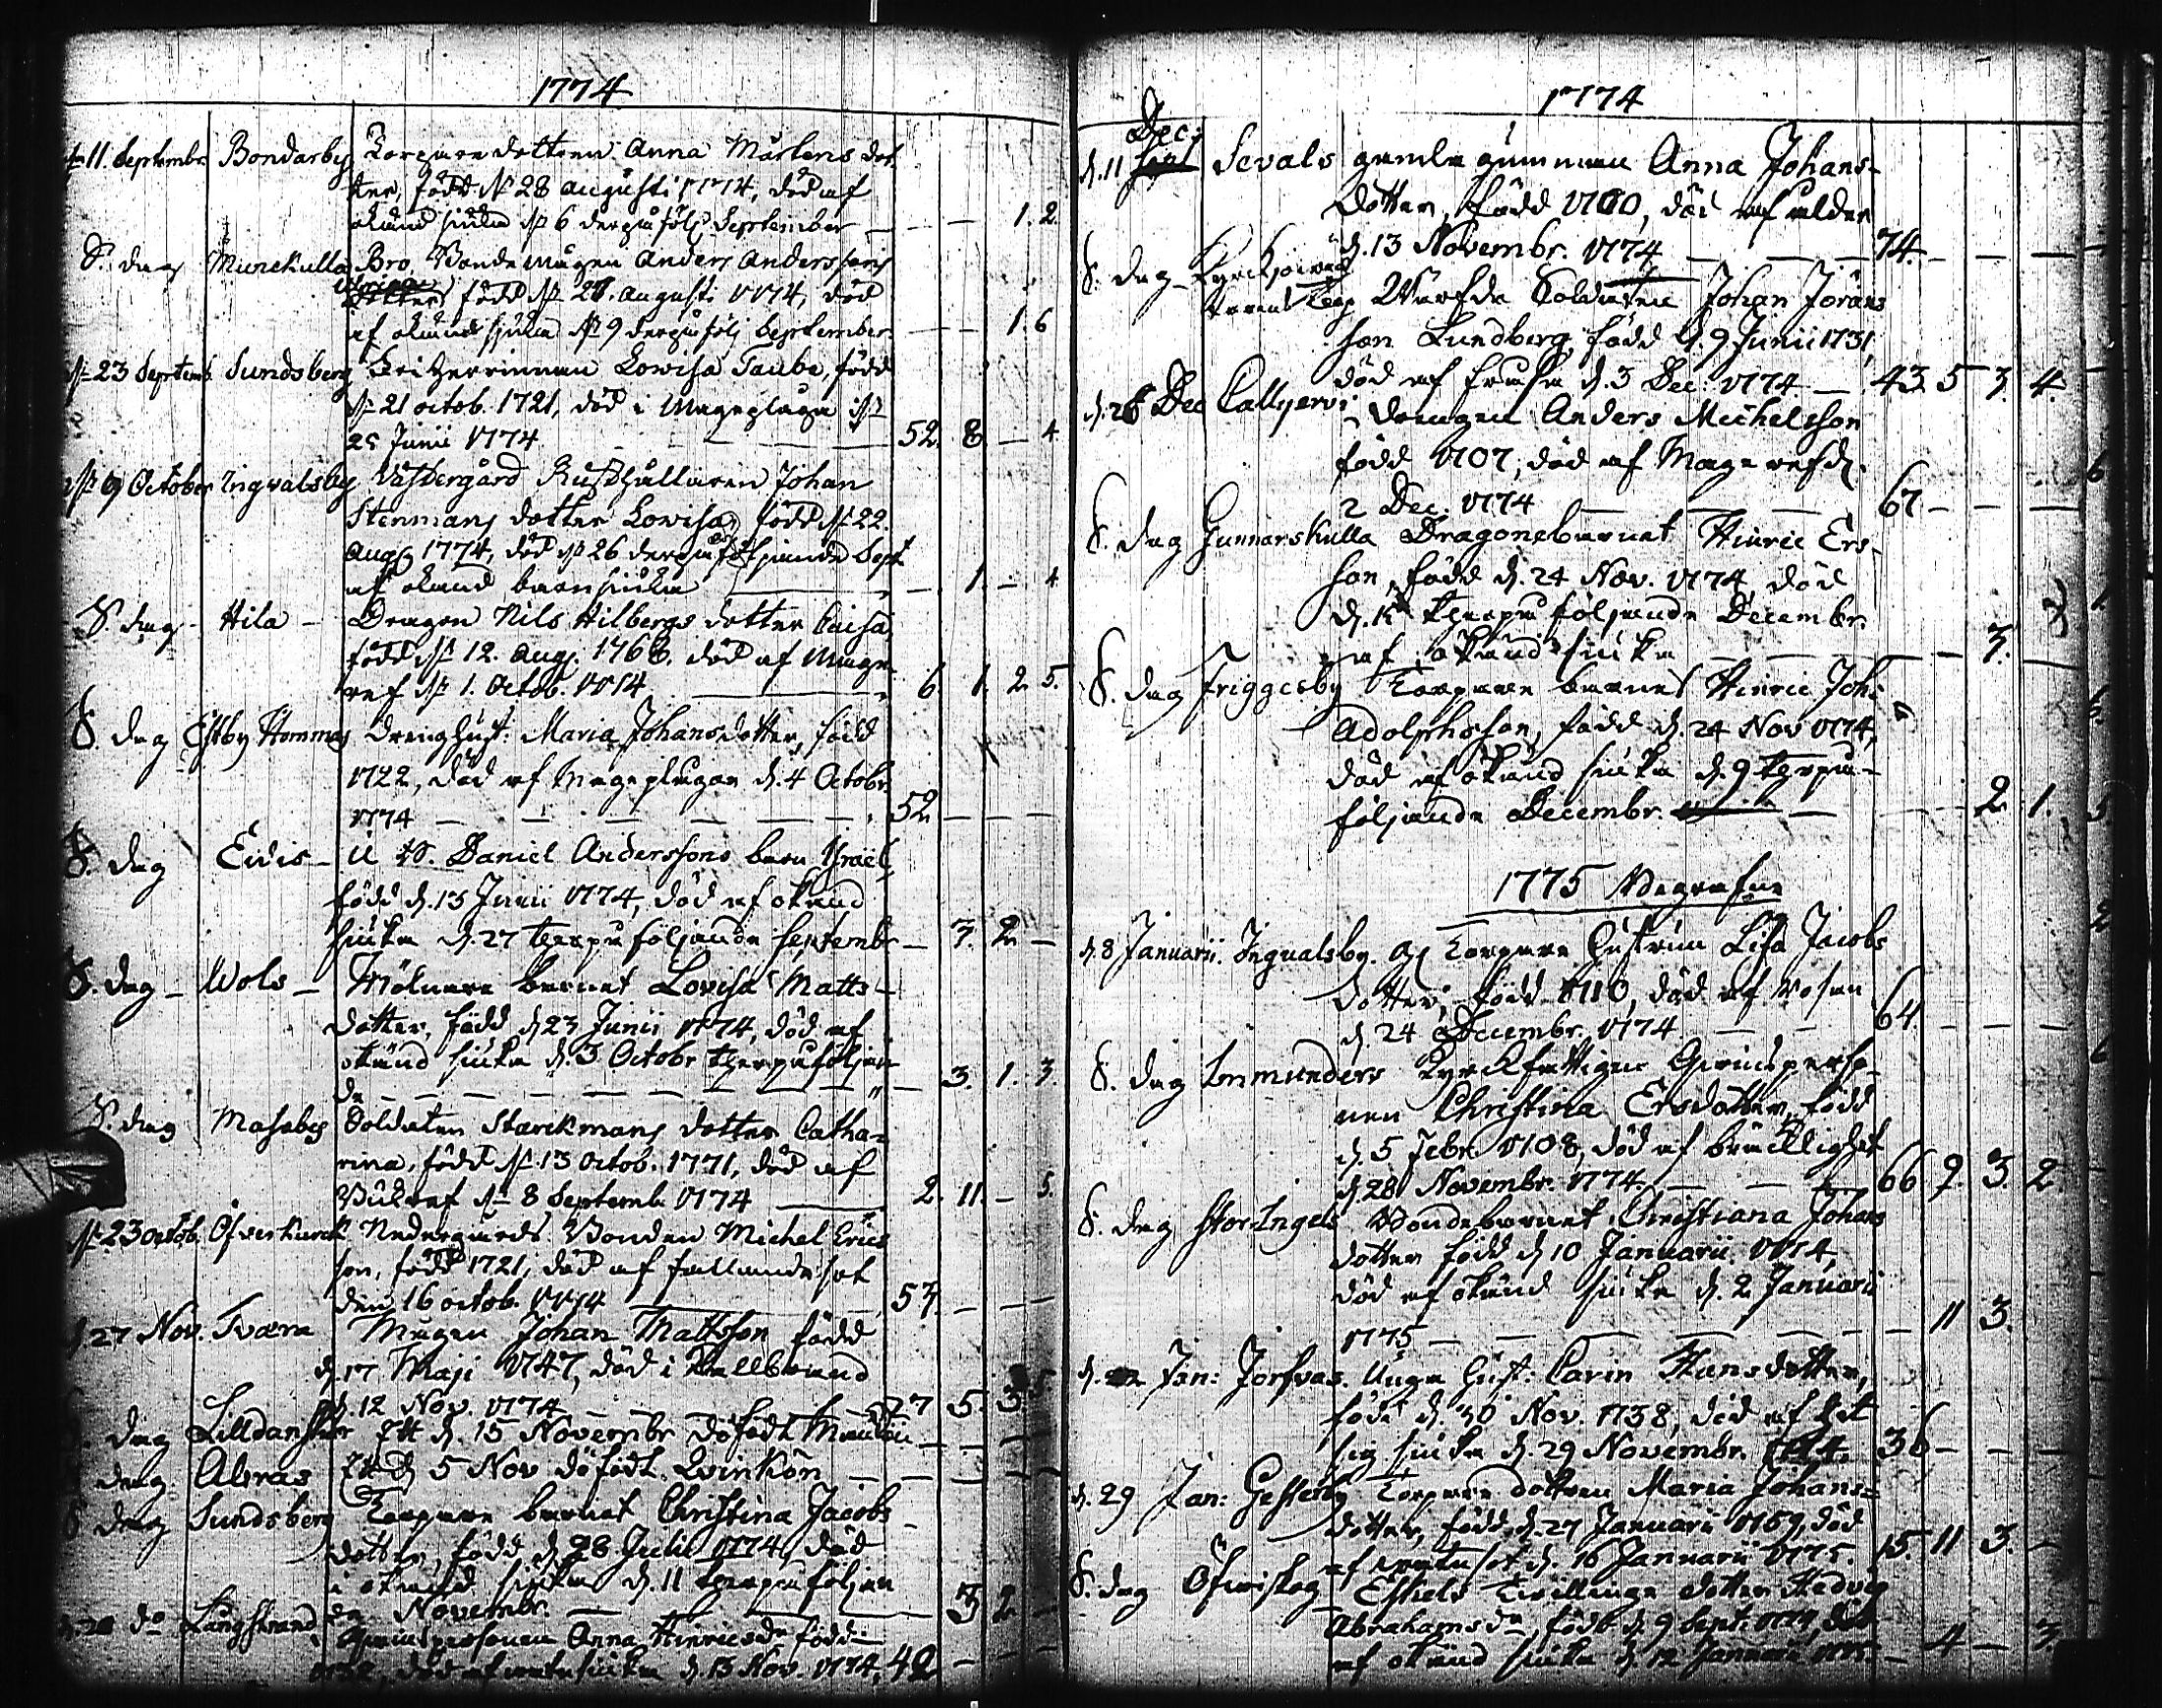 1774
11. Septembr. Bondarby Torpare dottren Anna Mårtens dot-
ter, född d. 28 augusti 1774, död af
okänd siuka d. 6 derpå följ. September — — 1. 2.
S. dag Munckulla Bro, Bonde mågen Anders Anderssons
dotter född d. 28. augusti 1774, död
af okänd sjuka d. 9 derpå följ September — — 1. 6
d. 23 Septemb. Sundsberg Friherrinnan Lowisa Taube, född
d. 21 octob. 1721, död i Mageplåga d.
25 Junii 1774 — 52. 8 — 4
d. 9 October Ingvalsby Västergård Rusthållaren Johan
Stenmans dotter Lovisa, född d. 22.
Aug. 1774, död d. 26 derpå följande Sept.
af okänd barnsiuka — — 1. — 4
S. dag - Hila - Dragon Nils Hilbergs dotter Caisa,
född d. 12. Aug. 1768. död af Mage-
ref d. 1. Octob. 1774 — 6. 1. 2. 5.
S. dag Estby Hommas drenghust: Maria Johansdotter, född
1722, död af Mageplågan d. 4 Octobr.
1774 — — — 52 — — —
S. dag Eivis - Daniel Anderssons barn Israël,
född d. 13 Junii 1774, död af okänd
siuka d. 27 therpå följande Septembr — 3. 2. —
S. dag - Wols - Mölnare barnet Lovisa Matts-
dotter, född d. 23 Junii 1774, död af
okänd siuka d. 3 Octobr therpå följan
de — — — 3. 1. 3.
S. dag Masaby Soldaten Starckmans dotter Catha=
rina, född d. 13 Octob. 1771, död af
Bukref d. 8 Septemb. 1774 — 2. 11. — 5.
d. 23 Octob. Öfverkurck Nedergårds Bonden Michel Erics
son, född 1721, död af fallandesot
den 16 octob. 1774 — 53. — — —
d. 27 Nov. Tvära Mågen Johan Mattsson född
d. 17 Maji 1747, död i Kallbrand
d. 12 Nov. 1774 — 27 5. 3.
dag Lilldansker Ett d. 15 Novembr dödfödt Mankön — — —
dag Abras Ett d. 5 Nov dödfödt Qvinkön — — —
S dag Sundsberg Torpare barnet Christina Jacobs
dotter, född d. 28 Julii 1774, död
i okänd siuka d. 11 therpå följan
de Novembr. — 3 2 —
do Långstrand Qvinspersonen Anna Hinricsdr född
1732, död af siuka d. 13 Nov. 1774, 42 — —
1774
Dec:
d. 11 Sevals gamla gumman Anna Johans-
dotter, född 1700, död af ålder
d. 13 Novembr. 1774 — 74. — — —
S. dag Torp Värfde Soldaten Johan Jörans
son Lundberg född d. 9 Junii 1731,
död af d. 3 Dec: 1774 — 43. 5 3. 4.
d. 26 Dec Callgervi drengen Anders Michelsson
född 1707, död af Mageref d.
2 Dec. 1774 — 67 — — —
S. dag Gunnarskulla Dragonebarnet Hinric Ers-
son, född d. 24 Nov. 1774, död
d. 15 therpå följande Decembr.
af okänd siuka — — — 3.
S. dag Friggesby Torpare barnet Hinric Joh:
Adolphsson, född d. 24 Nov 1774,
död af okänd siuka d. 9 therpå-
följande Decembr. — — 2. 1.
1775 Begrafne
d. 8 Januarii. Ingvalsby. Torpare Hustrun Lisa Jacobs
dotter, född 1710, död af rosen
d. 24 Decembr. 1774 — 64 — — —
S. dag Inmunders Kyrckfattiga Qvinsperso-
nen Christina Ersdotter, född
d. 5 Febr. 1708, död af bräcklighet
d. 28 Novembr. 1774. — 66 9. 3. 2.
S. dag StorIngels Bondebarnet Christiana Johans
dotter född d. 10 Januarii 1774,
död af okänd siuka d. 2 Januarii
1775 — — — 11 3.
d. 22 Jan: Jorfvas. Unga Hust: Carin Hansdotter,
född d. 30 Nov. 1738, död af het
sig siuka d. 29 Novembr. 1774. 36 — — —
d. 29 Jan: Gesterby Torpare dottren Maria Johans=
dotter, född d. 27 Januarii 1759, död
af d. 16 Januarii 1775. 15. 11 3. —
S. dag Öfwitskog Eskils Tvillinge dotter Hedvig
Abrahamsdr, född d. 9 Sept: 1774, död
af okänd siuka d. 12 Januarii 1775 — 4 — 3.